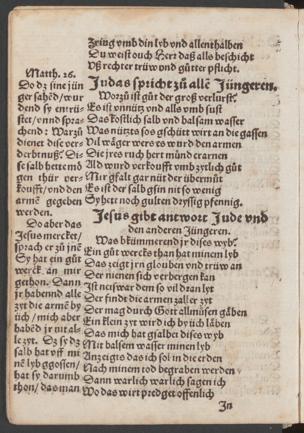 Zring vmb din lyb vnd allenthalben
Du weist ouch Herr daß alls beschicht
Vß rechter trüw vnd gütter pflicht.
Judas spricht zů allē Jüngeren.
Worzů ist gůt der groß verlurst?
Es ist vnnütz vnd alls vmb sust
Das kostlich salb vnd balsam wasser
Was nützts sos gschütt wirt an die gassen
Vil wäger wers es wurd den armen
Die jres ruch hert mūnd erarnen
Ald wurd verkoufft vmb zytlich gůt
Mir gfalt gar nüt der übermůt
Es ist der salb gsin nit so wenig
Sy hett noch gulten dryssig pfennig.
Jesus gibt antwort Jude vnd
den anderen Jüngeren.
Was bkümmerend jr dises wyb?
Ein gůt wercks than hat minem lyb
Das zeigt jrn glouben vnd trüw an
Der nienen sich verbergen kan
Ist neiswar dem so vil dran lyt
Der findt die armen zaller zyt
Der mag durch Gott allmůsen gäben
Ein klein zyt wird ich by üch läben
Das mich hat gsalbet dises wyb
Mit balsam wasser minen lyb
Anzeigts das ich sol in die erden
Nach minem tod begraben werden
Dann warlich warlich sagen ich
Wo das wirt prediget offenlich
In
Matth. 26.
Do dz sine jün
ger sahēd / wur
dend sy entrü⸗
stet / vnnd spra⸗
chend: Warzů
dienet dise ver⸗
derbtnuß? Di⸗
se salb hette mö
gen thür ver⸗
koufft / vnd den
armē gegeben
werden.
Do aber das
Jesus mercket /
sprach er zů jnē
Sy hat ein gůt
werck an mir
gethon. Dann
jr habennd alle
zyt die armē by
üch / mich aber
habēd jr nit al⸗
le zyt. Dz sy dz
salb hat vff mi
nē lyb ggossen /
hat sy darumb
thon / das man